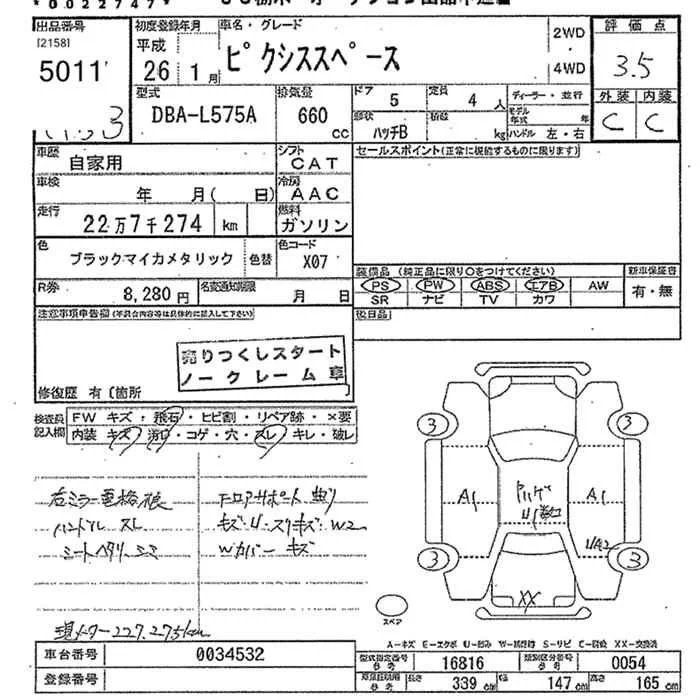 *0022747*
出品番号
[2158]
5011
初度登録年月
平成
26 1月
車名・グレード
ピクシススペース
2WD
4WD
評価点
3.5
外装 内装
C C
型式
DBA-L575A
排気量
660
cc
ドア
5
定員
4人
形状
ハッチB
積載
kg
ディーラー・並行
モデル年式 年
ハンドル 左・右
車歴
自家用
シフト
CAT
車検
年 月( 日)
冷房
AAC
走行
22万7千274 km
燃料
ガソリン
色
ブラックマイカメタリック
色替
色コード
X07
R券
8,280円
名変通知期限
月 日
セールスポイント(正常に機能するものに限ります)
装備品 (純正品に限り○をつけてください)
PS PW ABS エアB AW
SR ナビ TV カワ
新車保証書
有・無
後日品
注意事項申告欄
売りつくしスタート
ノークレーム車
修復歴 有〔箇所 〕
検査員記入欄
FW キズ・飛石・ヒビ割・リペア跡・×要
内装 キズ・汚レ・コゲ・穴・スレ・キレ・破レ
ハンドル スレ
キズ
現メーター227.275km
3
3
3
3
A1
A1
XX
スペア
A-キズ E-エクボ U-凹み W-補修跡 S-サビ C-腐食 XX-交換済
車台番号
0034532
登録番号
型式指定番号
参考
16816
類別区分番号
参考
0054
参考
長さ
339 cm
幅
147 cm
高さ
165 cm